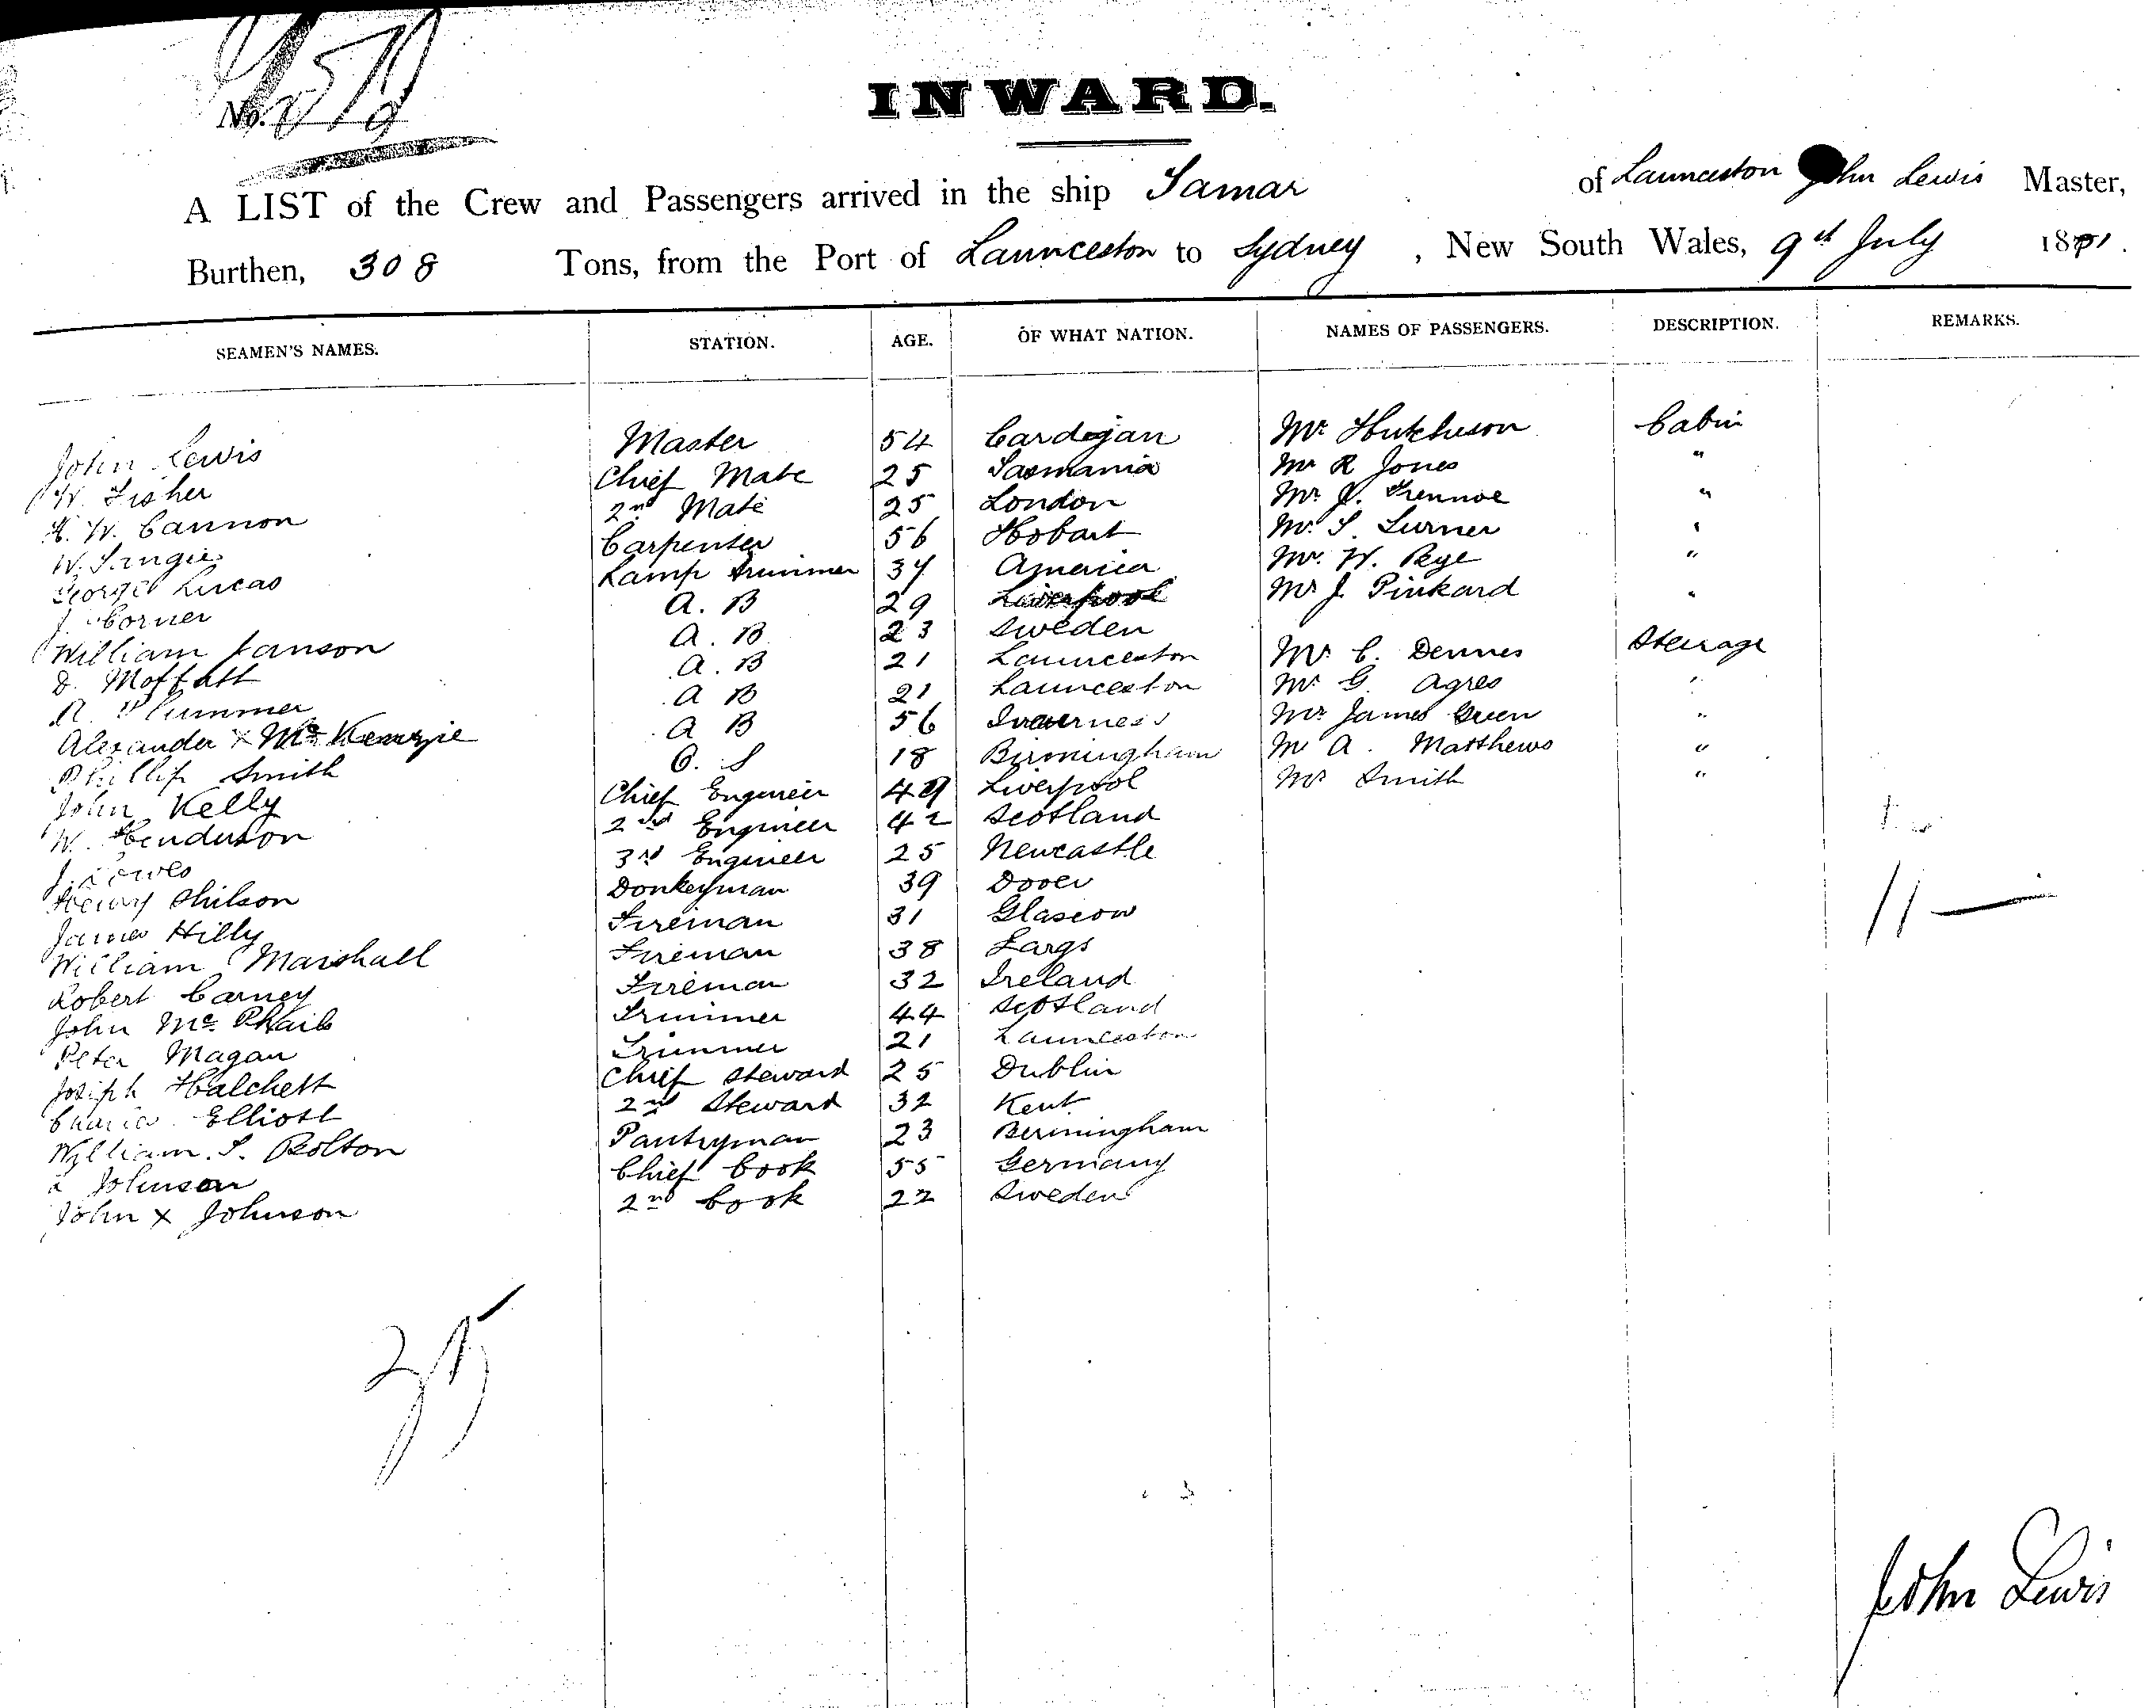 No.
INWARD.
A LIST of the Crew and Passengers arrived in the ship Tamar of Launceston John Lewis Master,
Burthen, 308 Tons, from the Port of Launceston to Sydney, New South Wales, 9th July 18
SEAMEN'S NAMES. STATION. AGE. OF WHAT NATION. NAMES OF PASSENGERS. DESCRIPTION. REMARKS.
John Lewis Master 54 Cardigan Mr Hutchison Cabin
W. Fisher Chief Mate 25 Tasmania Mr R Jones "
H. W. Cannon 2nd Mate 25 London Mr J. "
W. Carpenter 56 Hobart Mr S. Turner "
George Lucas Lamp trimmer 34 America Mr. W. Pye "
J. Corner A. B 29 Liverpool Mr J Pinkard "
William Janson A. B 23 Sweden
D. Moffatt A. B 21 Launceston Mr C. Dennes Steerage
R. Plummer A B 21 Launceston Mr G Agres "
Alexander x McKenzie A B 56 Inverness Mr James Green "
Phillip Smith O. S 18 Birmingham Mr A. Matthews "
John Kelly Chief Engineer 49 Liverpool Mr Smith "
W. Henderson 2nd Engineer 42 Scotland
J. 3rd Engineer 25 Newcastle
Henry Shilson Donkeyman 39 Dover
James Hilly Fireman 31 Glascow
William Marshall Fireman 38 Largs
Robert Carney Fireman 32 Ireland
John McPhail Trimmer 44 Scotland
Peter Magan Trimmer 21 Launceston
Joseph Halchett Chief Steward 25 Dublin
Charles Elliott 2nd Steward 32 Kent
William. S. Bolton Pantryman 23 Birmingham
Johnson Chief Cook 55 Germany
John x Johnson 2nd Cook 22 Sweden
11
25
John Lewis